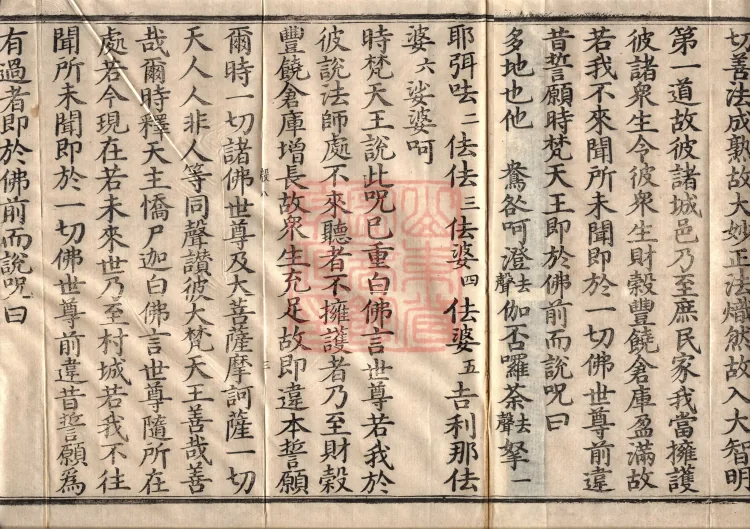 切善法成熟故大妙正法熾然故入大智明
第一道故彼諸城邑乃至庶民家我當擁護
彼諸衆生令彼衆生財穀豐饒倉庫盈滿故
若我不來聞所未聞即於一切佛世尊前違
昔誓願時梵天王即於佛前而說呪曰
多地也他 鴦咎呵澄去聲伽否囉荼去聲拏一
耶弭呿二佉佉三佉婆四佉婆五吉利那佉
婆六娑婆呵
時梵天王說此呪已重白佛言世尊若我於
彼說法師處不來聽者不擁護者乃至財穀
豐饒倉庫增長故衆生充足故即違本誓願
爾時一切諸佛世尊及大菩薩摩訶薩一切
天人人非人等同聲讚彼大梵天王善哉善
哉爾時釋天主憍尸迦白佛言世尊隨所在
處若今現在若未來世乃至村城若我不往
聞所未聞即於一切佛世尊前違昔誓願爲
有過者即於佛前而說呪曰